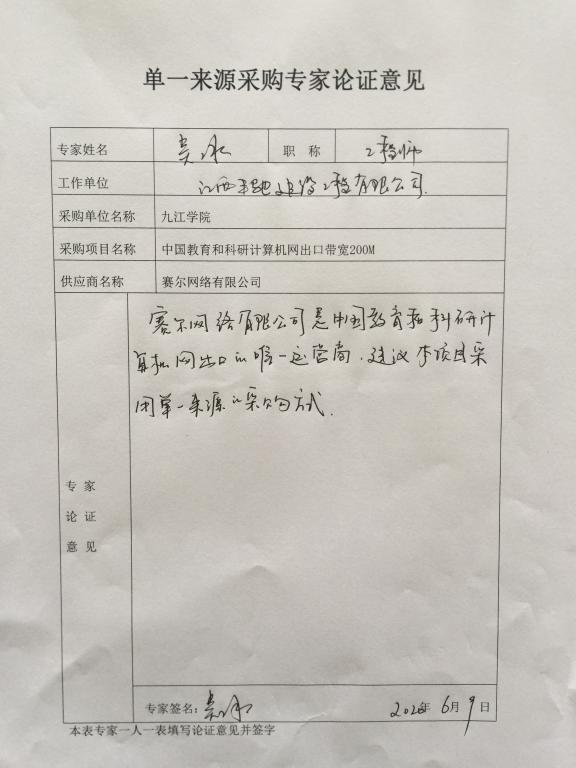 单一来源采购专家论证意见
专家姓名 职 称 工程师
工作单位 江西 工程有限公司
采购单位名称 九江学院
采购项目名称 中国教育和科研计算机网出口带宽200M
供应商名称 赛尔网络有限公司
赛尔网络有限公司是中国教育和科研计
算机网出口的唯一运营商,建议本项目采
用单一来源的采购方式.
专 家
论 证
意 见
专家签名: 年 6月9日
本表专家一人一表填写论证意见并签字